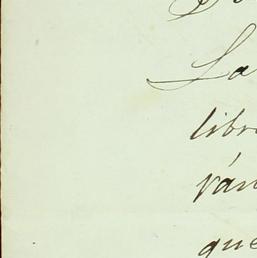 La
libr
ván
que